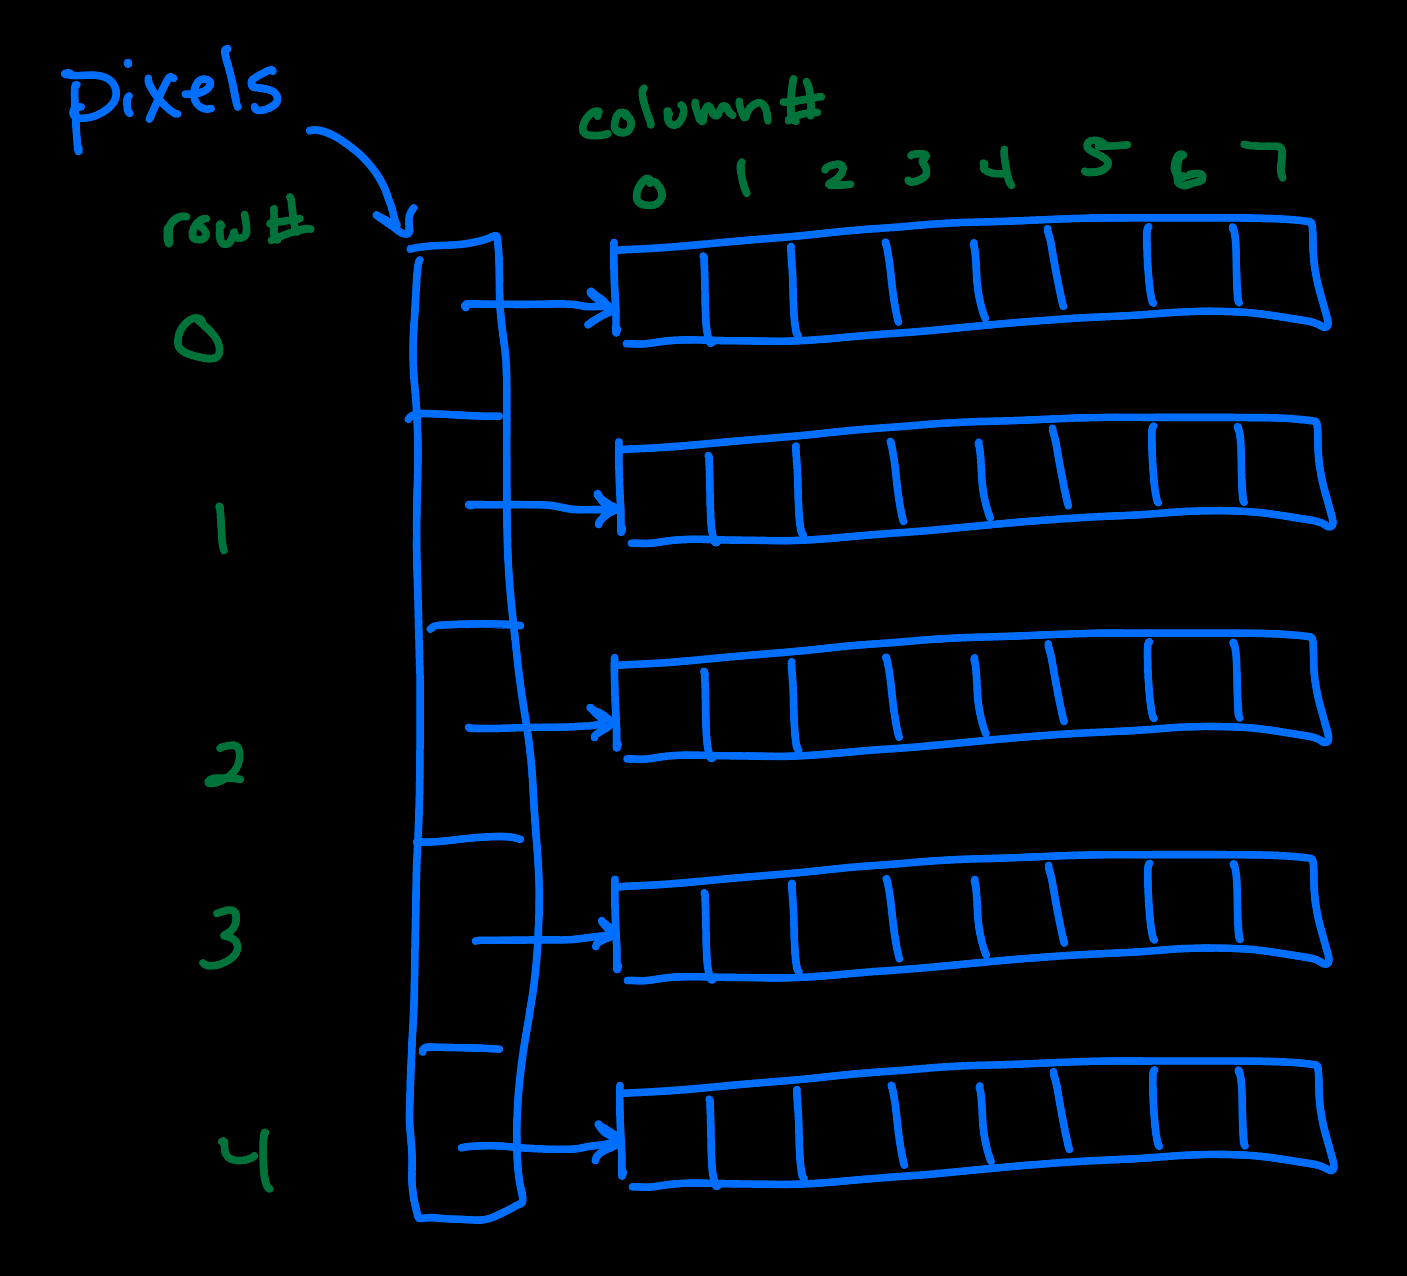 pixels
column#
0 1 2 3 4 5 6 7
row#
0
1
2
3
4